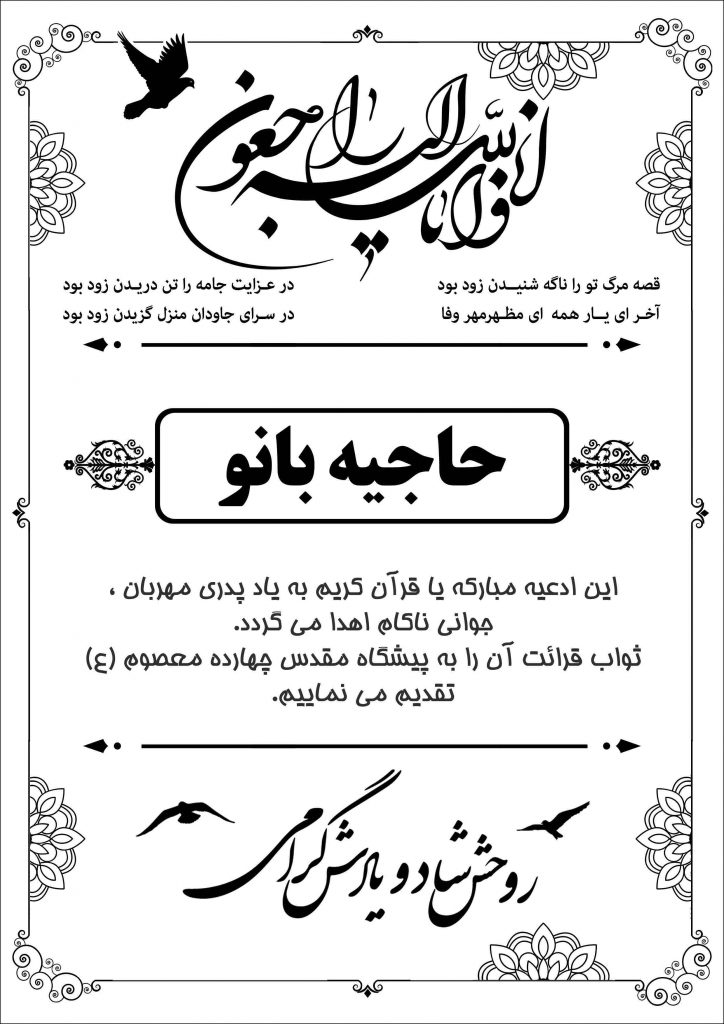 انا لله و انا الیه راجعون
قصه مرگ تو را ناگه شنیدن زود بود در عزایت جامه را تن دریدن زود بود
آخر ای یار همه ای مظهرمهر وفا در سرای جاودان منزل گزیدن زود بود
حاجیه بانو
این ادعیه مبارکه یا قرآن کریم به یاد پدری مهربان ،
جوانی ناکام اهدا می گردد.
ثواب قرائت آن را به پیشگاه مقدس چهارده معصوم (ع)
تقدیم می نماییم.
روحش شاد و یادش گرامی